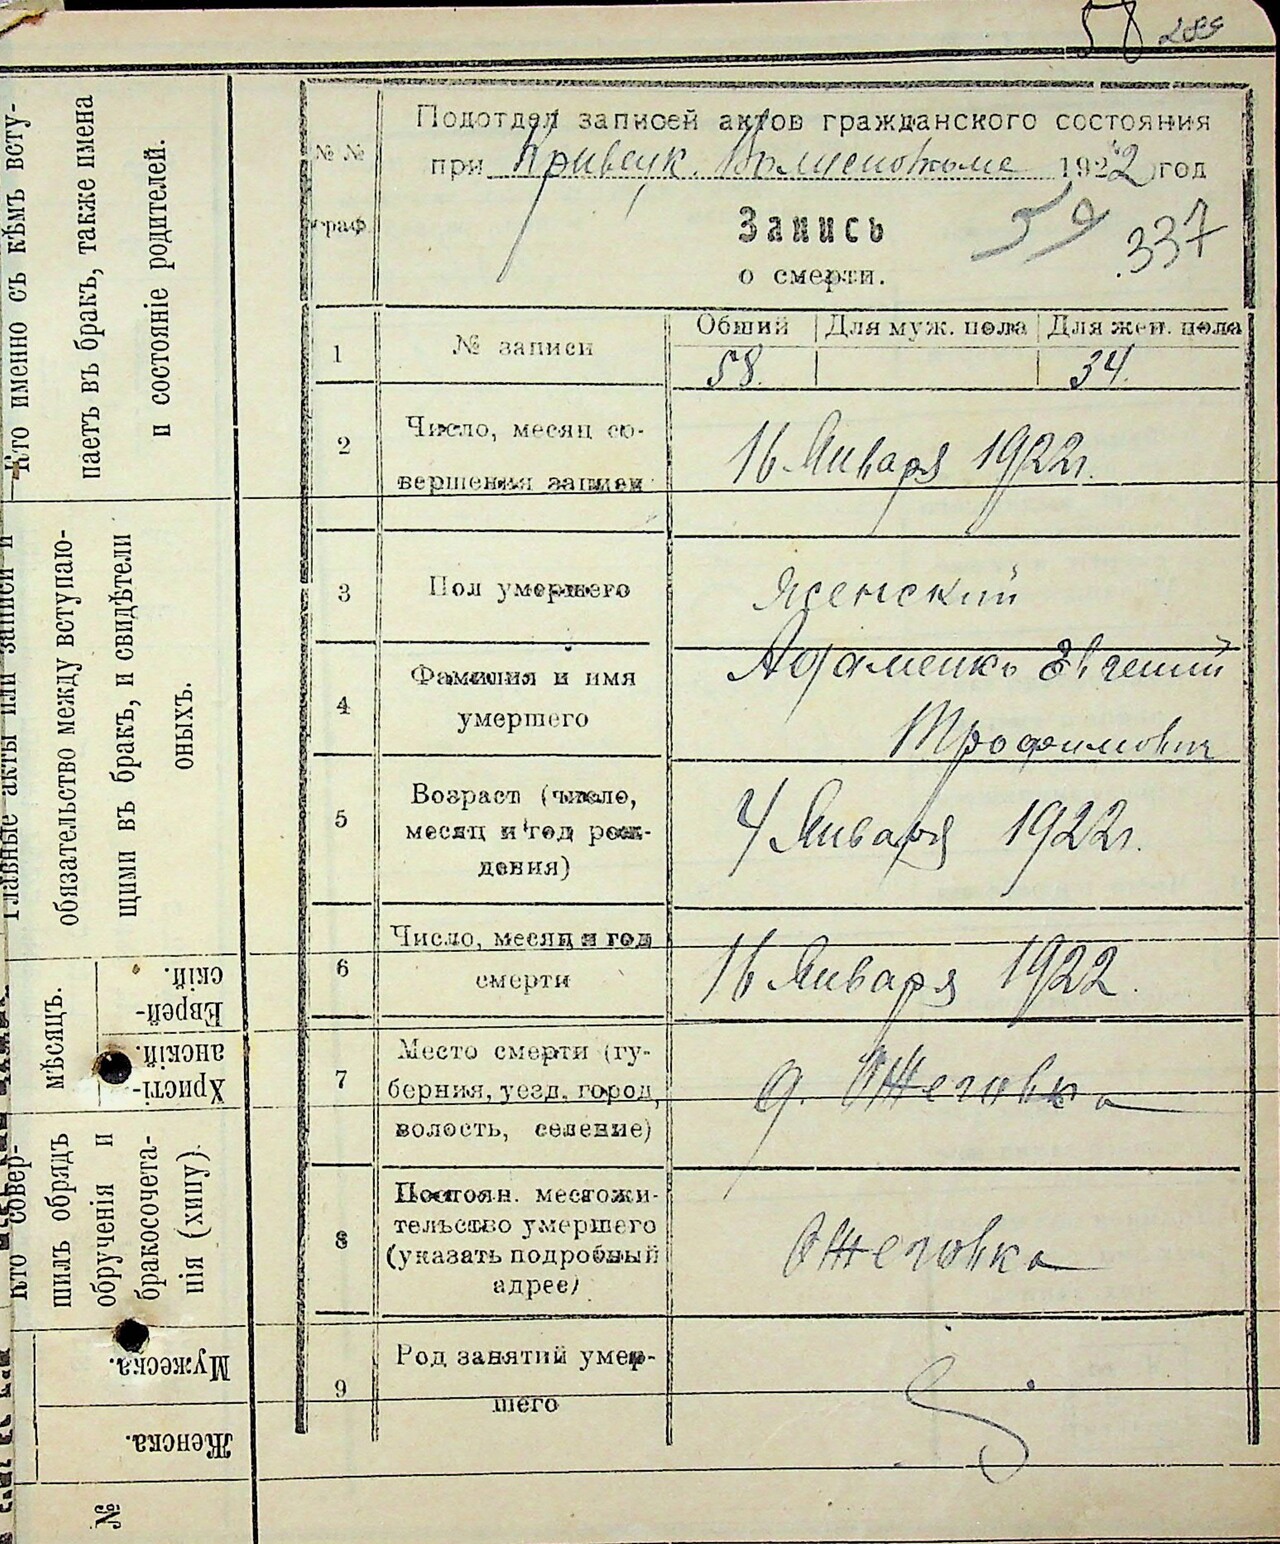 58
Подотдел записей актов гражданского состояния
при 1922 год
№ №
граф.
Запись
59
337
о смерти.
Обший Для муж. пола Для жен. пола
1 № записи 58. 34.
2 Число, месяц со-
вершения записи
16 Января 1922 г.
3 Пол умершего Женский
4 Фамилия и имя
умершего
Адаменко Евгений
Трофимович
5 Возраст (число,
месяц и год рож-
дения)
4 Января 1922 г.
6 Число, месяц и год
смерти
16 Января 1922.
7 Место смерти (гу-
берния, уезд, город,
волость, селение)
д. Ожеговка
8 Постоян. местожи-
тельство умершего
(указать подробный
адрес)
Ожеговка
9 Род занятий умер-
шего
Кто именно съ кѣмъ всту-
паетъ въ бракъ, также имена
и состояніе родителей.
Главные акты или записи и
обязательство между вступаю-
щими въ бракъ, и свидѣтели
оныхъ.
мѣсяцъ.
Христі-
анскій.
Еврей-
скій.
Кто совер-
шилъ обрядъ
обрученія и
бракосочета-
нія (хипу)
Мужеска.
Женска.
№